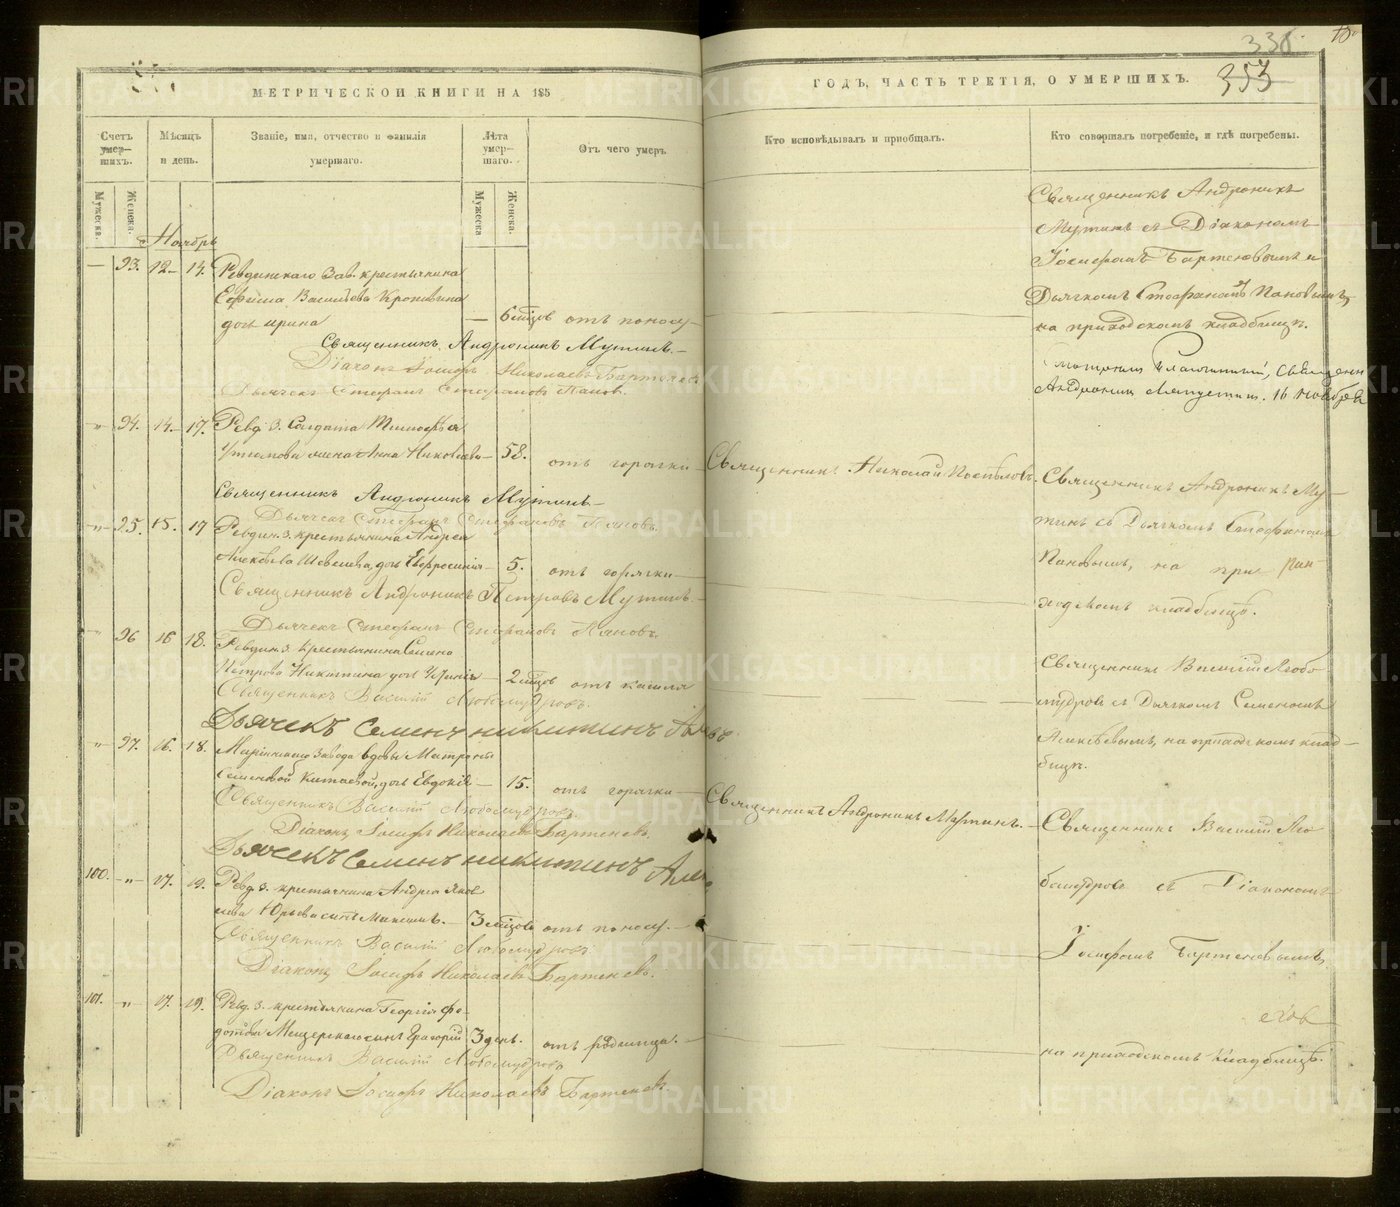 МЕТРИЧЕСКОЙ КНИГИ НА 185
ГОДЪ, ЧАСТЬ ТРЕТІЯ, О УМЕРШИХЪ.
338.
353
Счетъ умер-шихъ.
Мѣсяцъ и день.
Званіе, имя, отчество и фамилія умершаго.
Лѣта умер-шаго.
Отъ чего умеръ.
Кто исповѣдывалъ и пріобщалъ.
Кто совершалъ погребеніе, и гдѣ погребены.
Мужеска.
Женска.
Мужеска
Женска.
Ноябрь
93. 12 14. Ревдинскаго Зав. крестьянина
Ефима Васильева
дочь Ирина
6 мѣсцов отъ поносу
Священникъ Андроникъ Мутинъ
Діаконъ Іосифъ Николаевъ Бартеневъ
Дьячекъ Стефанъ Стефановъ Пановъ.
Священникъ Андроникъ
Мутинъ съ Діакономъ
Іосифомъ Бартеневымъ и
Дьячкомъ Стефаномъ Пановымъ,
на приходскомъ кладбищѣ.
16 Ноября
94. 14 17. Ревд. З. Солдата Тимофѣя
жена Анна Николаева 58. отъ горячки
Священникъ Николай
Священникъ Андроникъ Му-
тинъ съ Дьячкомъ Стефаномъ
Пановымъ, на при-
ходскомъ кладбищѣ.
Священникъ Андроникъ Мутинъ
Дьячекъ Стефанъ Стефановъ Пановъ.
95. 15. 17 Ревдин. З. крестьянина Андрея
Алексѣева дочь Евфросинія 5. отъ горячки
Священникъ Андроникъ Петровъ Мутинъ
Дьячекъ Стефанъ Стефановъ Пановъ.
96 16 18. Ревдин. З. крестьянина Семена
Петрова Никитина дочь 2 мѣсцов отъ кашля
Священникъ Василій Любомудровъ.
Дьячекъ Семенъ Никитинъ
Священникъ Василій Любо-
мудровъ съ Дьячкомъ Семеномъ
Алексѣевымъ, на приходскомъ клад-
бищѣ.
97. 16. 18. Маріинскаго Завода вдовы Матроны
Семеновой дочь Евдокія 15. отъ горячки
Священникъ Андроникъ Мутинъ.
Священникъ Василій Любомудровъ.
Діаконъ Іосифъ Николаевъ Бартеневъ.
Дьячекъ Семенъ Никитинъ
Священникъ Василій Лю
бомудровъ съ Діакономъ
Іосифомъ Бартеневымъ,
на приходскомъ кладбищѣ.
100. 17. 19. Ревд. З. крестьянина Андрея Яков
лева Юрьева сынъ Максимъ. 3 мѣсцов отъ поносу.
Священникъ Василій Любомудровъ
Діаконъ Іосифъ Николаевъ Бартеневъ.
101. 17. 19. Ревд. З. крестьянина Георгія Фе-
дотова сынъ Григорій 3 дня. отъ родимца.
Священникъ Василій Любомудровъ
Діаконъ Іосифъ Николаевъ Бартеневъ.
METRIKI.GASO-URAL.RU